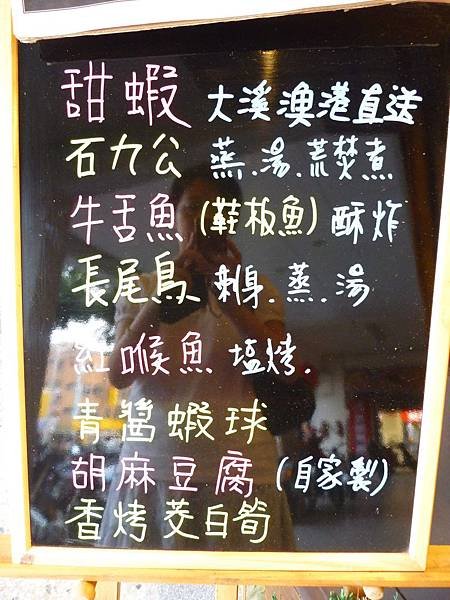 甜蝦 大溪漁港直送
石九公 蒸.湯.荒焚煮
牛舌魚(鞋板魚)酥炸
長尾鳥 刺身.蒸.湯
紅喉魚 塩烤.
青醬蝦球
胡麻豆腐(自家製)
香烤茭白筍